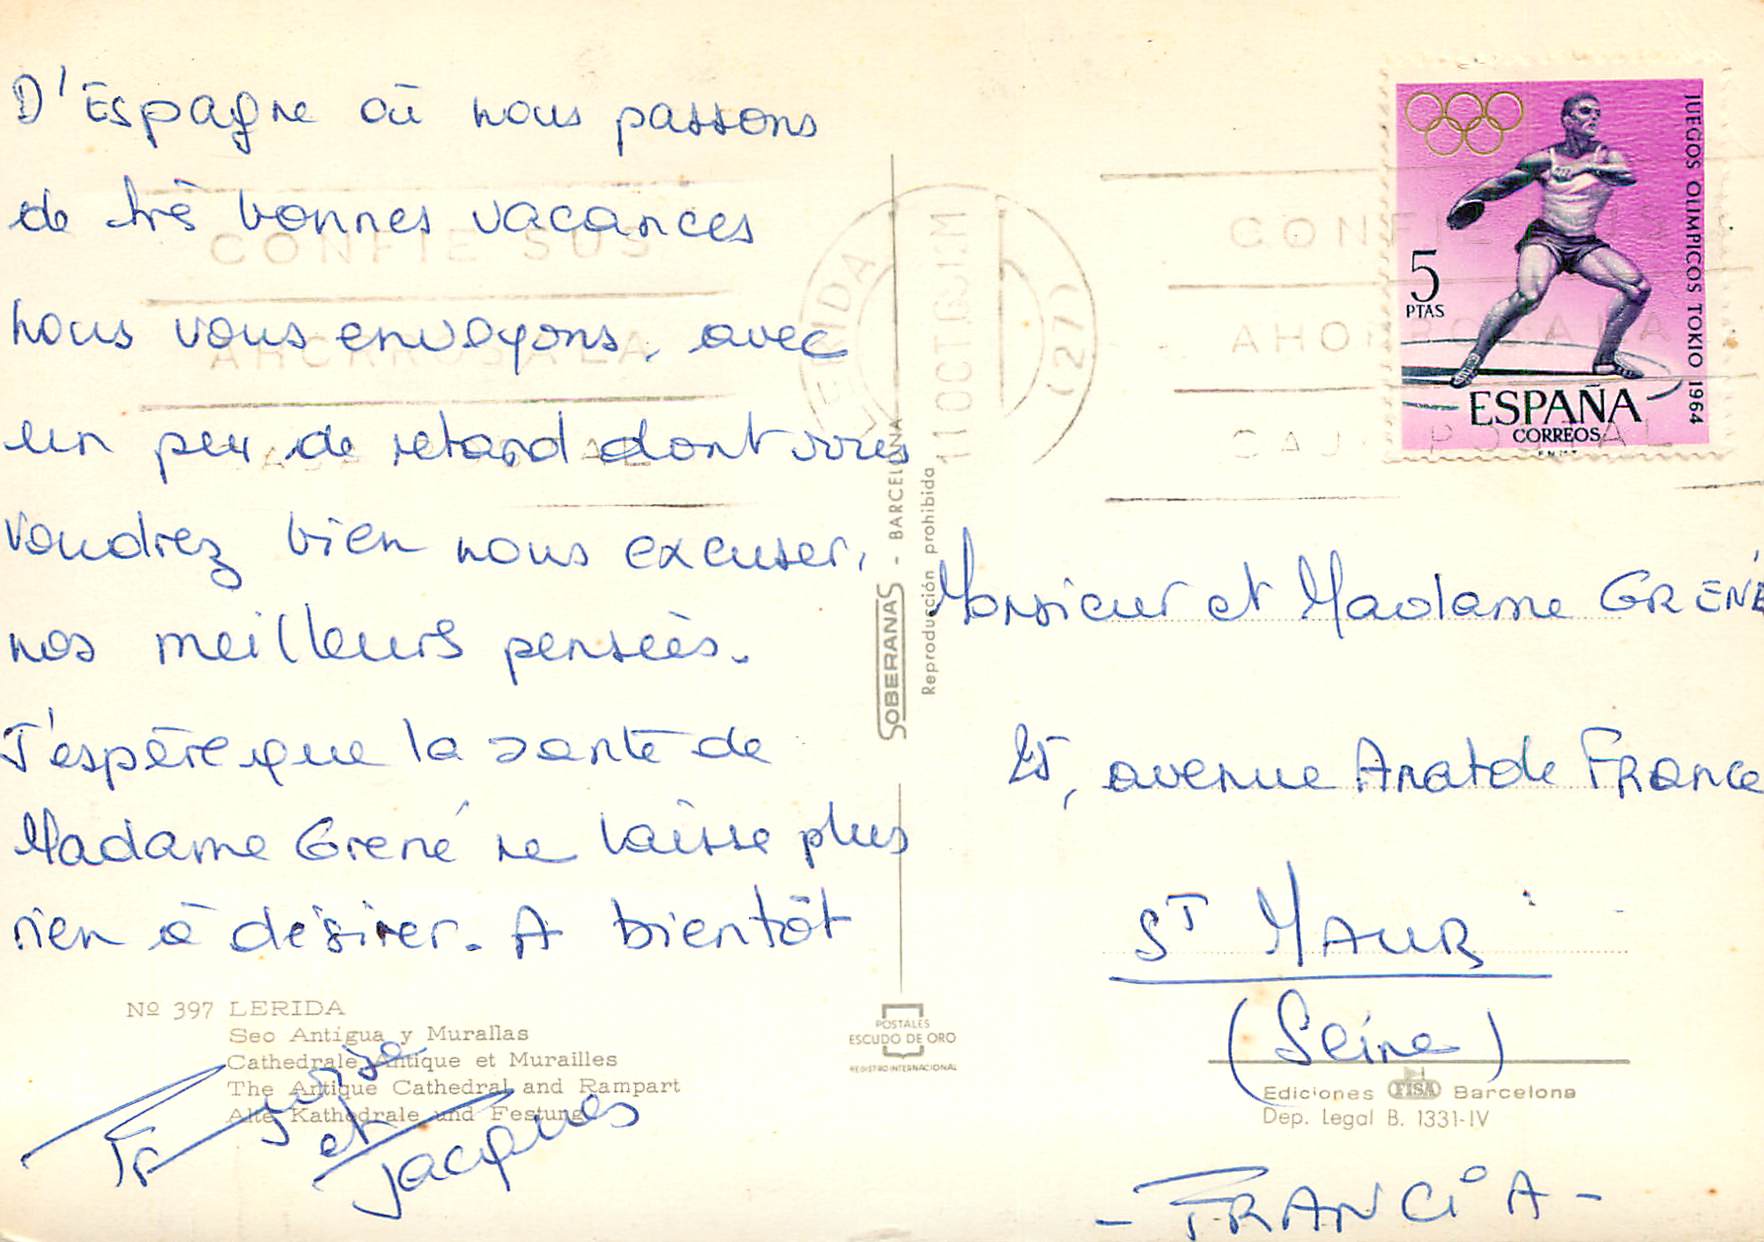 D'Espagne où nous passons
de très bonnes vacances
nous vous envoyons, avec
un peu de retard dont vous
voudrez bien nous excuser,
nos meilleurs pensées.
J'espère que la santé de
Madame Grené ne laisse plus
rien à désirer. A bientôt
et
Jacques
Nº 397 LERIDA
Seo Antigua y Murallas
Cathedrale Antique et Murailles
The Antique Cathedral and Rampart
Alte Kathedrale und Festung
SOBERANAS - BARCELONA
Reproducción prohibida
POSTALES
ESCUDO DE ORO
REGISTRO INTERNACIONAL
CONFIE SUS
AHORROS A LA
CAJA POSTAL
LERIDA
11 OCT
(27)
CONFIE SUS
AHORROS A LA
CAJA POSTAL
JUEGOS OLIMPICOS TOKIO 1964
5
PTAS
ESPAÑA
CORREOS
F.N.M.T.
Monsieur et Madame GRENÉ
25, avenue Anatole France
ST MAUR
(Seine)
Ediciones FISA Barcelona
Dep. Legal B. 1331-IV
- FRANCIA -